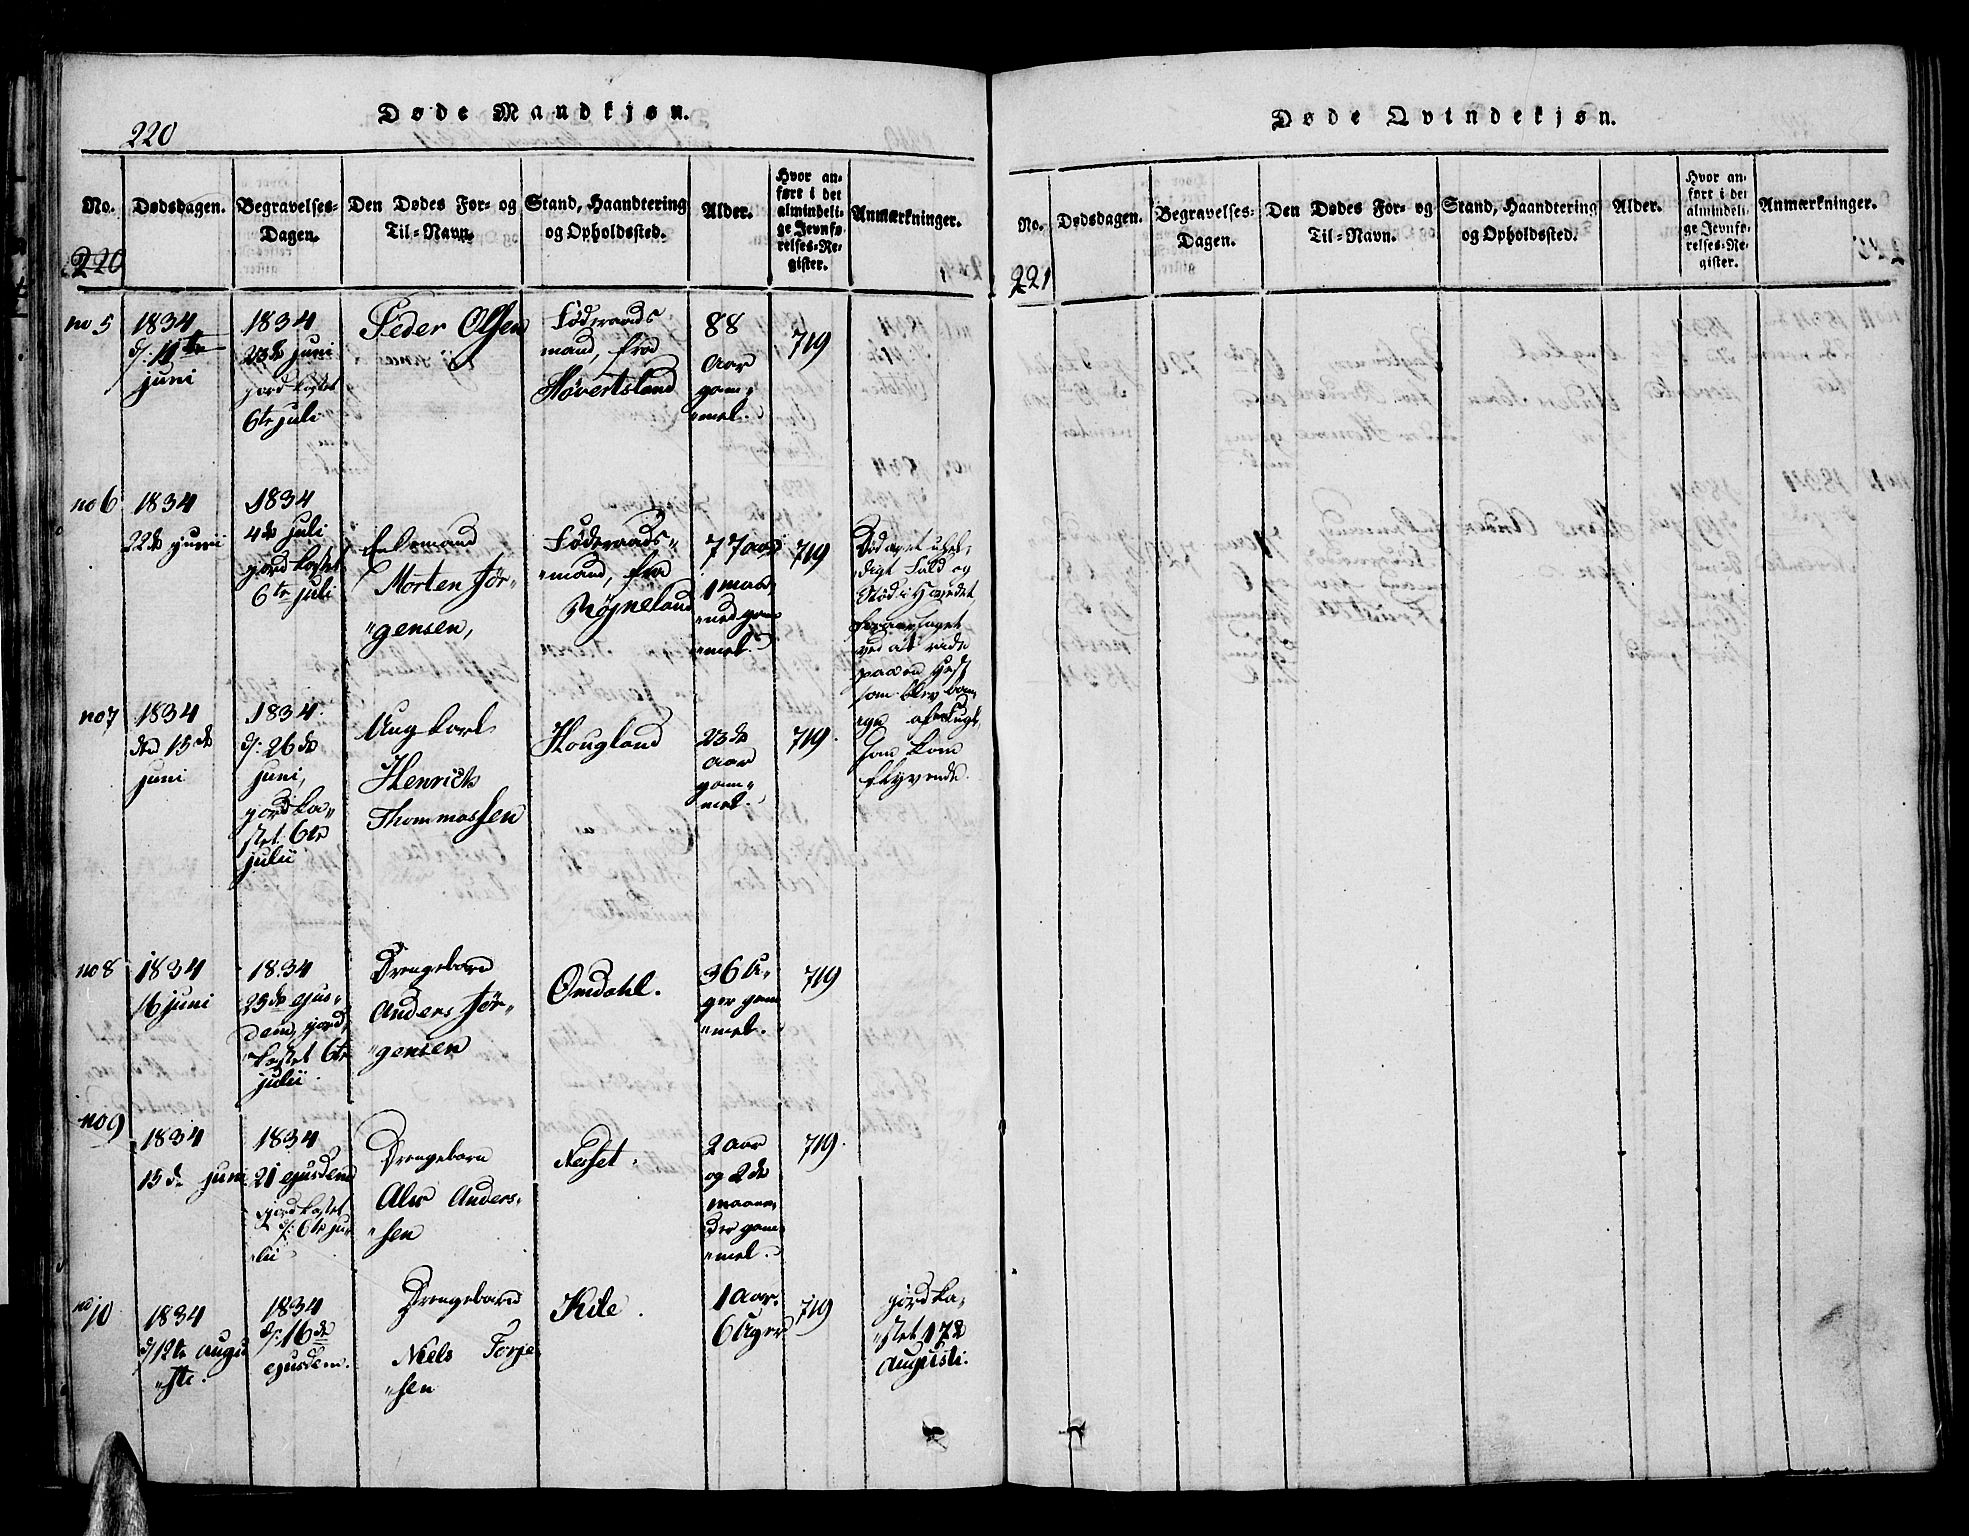 220
Døde Mandkjøn.
No.
Dødsdagen.
Begravelses-
Dagen.
Den Dødes For- og
Til-Navn.
Stand, Haandtering
og Opholdssted.
Alder.
Hvor an-
ført i det
almindeli-
ge Jevnfø-
relses-Re-
gister.
Anmærkninger.
220
no 5
1834
d: 11te
juni
1834
23de juni
jordkastet
6te juli
Peder Olsen
Föderaads
mand, fra
Høvertsland
88
Aar
gam-
"mel.
719
no 6
1834
22de junii
1834
4de juli
jordkastet
6te juli
Enkemand
Morten Jör-
"gensen,
Föderaads-
"mand, fra
Röjneland
77 aar
1 maa-
"ned gam
"mel.
719
Död af et uhel-
digt Fald og
Stöd i Hovedet
foraarsaget
ved at ride
paa en Hest
som blev ban-
ge af en Fugl,
som kom
flyvende.
no 7
1834
den 15de
juni
1834
d: 26de
juni,
jordka-
stet 6te
julii
Ung karl
Henrich
Thommassen
Hougland
23de
Aar
gam-
mel.
719.
no 8
1834
16 juni
1834
25de ejus-
dem, jord,
kastet 6te
julii.
Drengebarn
Anders Jör-
"gensen
Omdahl.
36 U-
ger gam
"mel.
719
no 9
1834
15de juni
1834
21 ejusdem
jordkastet
d: 6te ju-
"lii
Drengebarn
Alv Anders-
"sen
Nesset.
2 Aar
og 2de
maane-
der gam-
"mel.
719.
no 10
1834
d/12te Augu
"sti.
1834
d: 16de
ejusdem.
Drengebarn
Niels Torje
"sen
Kile.
1 Aar.
6 Uger
719
jordka-
"stet 17de
Augusti.
Døde Qvindekjøn.
No.
Dødsdagen.
Begravelses-
Dagen.
Den Dødes For- og
Til-Navn.
Stand, Haandtering
og Opholdssted.
Alder.
Hvor an-
ført i det
almindeli-
ge Jevnfø-
relses-Re-
gister.
Anmærkninger.
221